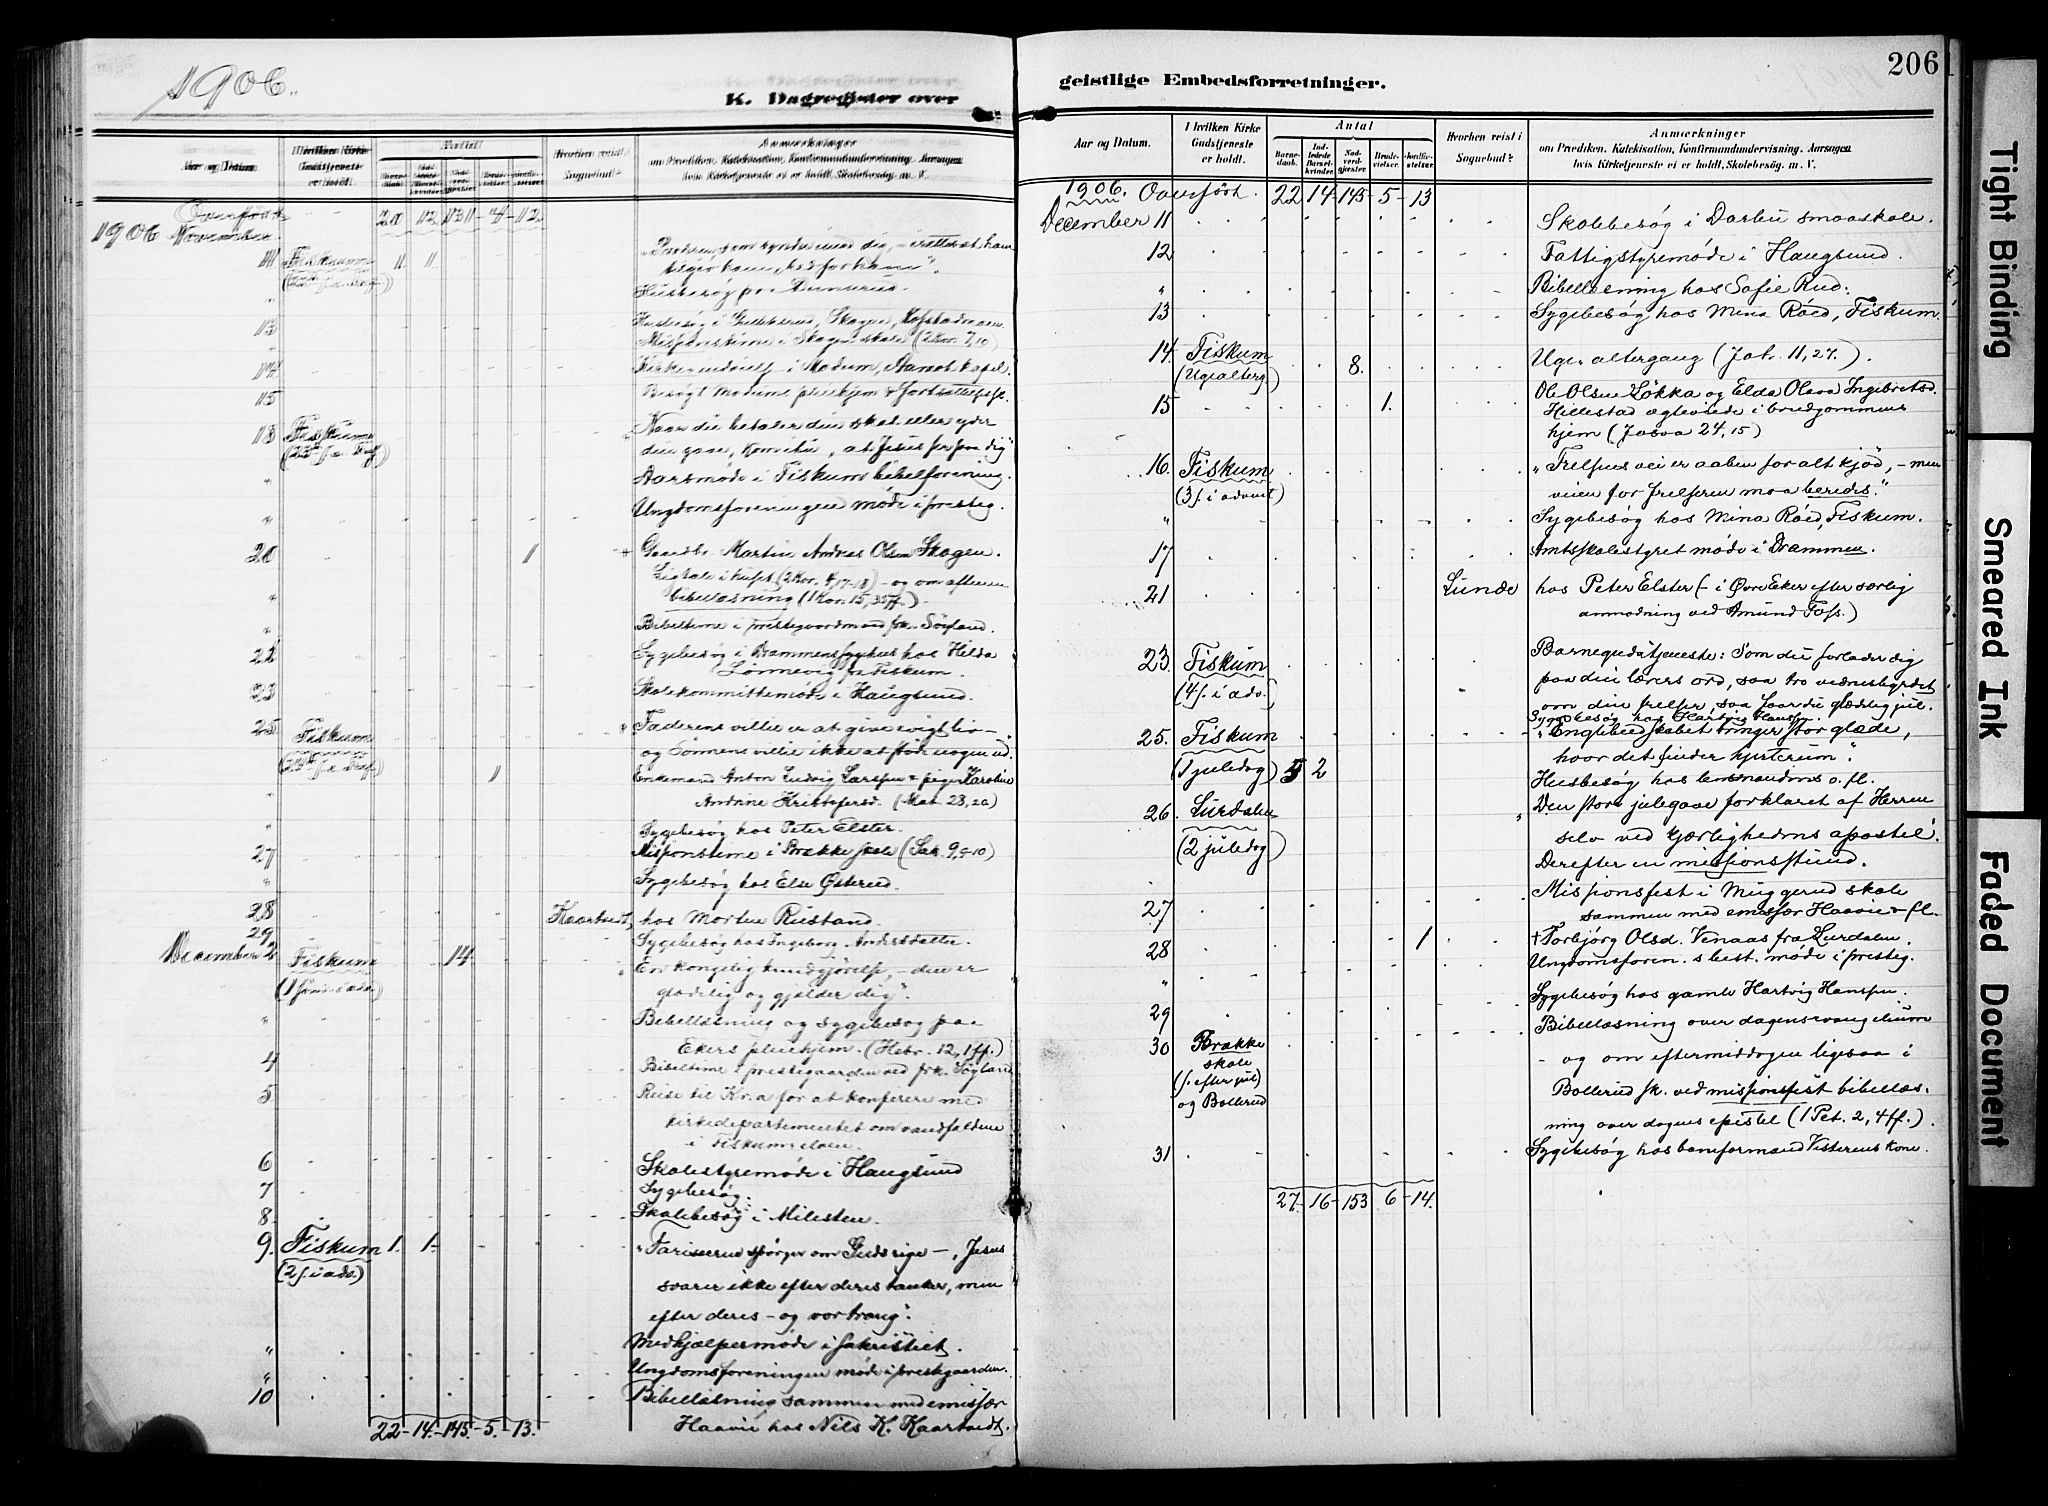 1906.
K. Dagregister over
Aar og Datum.
I hvilken Kirke Gudstjeneste er holdt.
Antal
Hvorhen reist i Sognebud?
Anmerkninger
om Prædiken, Katekisation, Konfirmandundervisning, Aarsagen
hvis Kirketjeneste ei er holdt, Skolebesøg m. V.
Overført 20 12 131 4 12
1906 November
11 Fiskum 1 1
Husbesøg paa
13 Husbesøg i
Missionstime i Skogen skole (2 Kor. 7,10)
14 i Modum, Aamot kapel.
15 Besøgt Modums pleiehjem
18 Fiskum Naar du betaler din skat eller yder
din gave, kom ihu, at Jesus ser paa dig"
" Aarsmøde i Fiskum bibelforening.
" Ungdomsforeningens møde i presteg.
20 1 + Gaardbr. Martin Andreas Olsen Skogen.
Ligtale i huset (2 Kor. 4,17-18) - og om aftenen
" bibellæsning (1 Kor. 15,35ff.).
" Bibeltime i prestegaarden ved frk. Søyland.
22 Sygebesøg i Drammens sygehus hos Hilda
Lønnevig fra Fiskum.
23 Skolekommittemøde i Haugsund.
25 Fiskum " Faderens villie er at give evigt liv -
og Sønnens villie ikke at støde nogen ud."
" 1 Enkemand Anton Ludvig Larssen + pige Karoline
Andrine Kristofersd. (Mat. 28,20)
" Sygebesøg hos Peter Elster.
27 Missionstime i Brække skole (Sak. 9,9-10)
" Sygebesøg hos Else Østerud.
28 Kaartvedt, hos Morten Rustand.
29 Sygebesøg hos Ingeborg Andersdatter.
December 2 Fiskum 14 " En kongelig kundgjørelse, - den er
(1 sønd. i adv.) glædelig og gjælder dig".
" Bibellæsning og sygebesøg paa
Ekers pleiehjem. (Hebr. 12,1ff.)
4 Bibeltime i prestegaarden ved frk. Søyland
5 Reise til Kr.a for at konferere med
kirkedepartementet om vandfaldene
i Fiskumelven.
6 Skolestyremøde i Haugsund
7 Sygebesøg.
8. Skolebesøg i Milesten.
9. Fiskum 1. 1. " Fariseerne spørger om Guds rige - Jesus
(2 s. i adv.) svarer ikke efter deres tanker, men
efter deres - og vor trang".
" Medhjælpermøde i sakristiet.
" Ungdomsforeningen møde i prestegaarden.
10 Bibellæsning sammen med emissær
Haavie hos Nils K. Kaartvedt.
22 - 14 - 145 - 5 - 13.
206
geistlige Embedsforretninger.
Aar og Datum.
I hvilken Kirke Gudstjeneste er holdt.
Antal
Barnedaab. Indledede Barselkvinder. Nadverdgjester. Brudevielser. Jordfæstelser.
Hvorhen reist i Sognebud?
Anmerkninger
om Prædiken, Katekisation, Konfirmandundervisning, Aarsagen
hvis Kirketjeneste ei er holdt, Skolebesøg, m. V.
1906. Overført. 22 14 145 - 5 - 13
December 11 Skolebesøg i Darbu smaaskole.
12 Fattigstyremøde i Haugsund.
" Bibellæsning hos Sofie Rud.
13 Sygebesøg hos Mina Røed, Fiskum.
14 Fiskum 8. Uge-altergang (Joh. 11,27.).
(Ugealterg.)
15 1. Ole Olsen Løkka og Elda Olava Ingebretsd.
Hillestad ægteviede i brudgommens
hjem (Josva 24,15)
16. Fiskum " Frelsens vei er aaben for alt kjød, - men
(3 s. i advent) veien for frelseren maa beredes."
" Sygebesøg hos Mina Røed, Fiskum.
17 Amtsskolestyret møde i Drammen.
21 Lunde hos Peter Elster (- i Øvre Eker efter særlig
anmodning ved Amund Foss.)
23. Fiskum Barnegudstjeneste: Som du forlader dig
(4 s. i adv. paa din lærers ord, saa tro vidnesbyrdet
om din frelser, saa faar du glædelig jul.
Sygebesøg hos Hartvig Hanssen.
25. Fiskum " Englebudskabet bringer stor glæde,
(1 juledag) 5 2 hvor det finder hjerterum".
Husbesøg hos lensmandens o. fl.
26. Lurdalen " Den store julegave forklaret af Herren
(2 juledag) selv ved kjærlighedens apostel".
Derefter en missionsstund.
27 Missionsfest i Muggerud skole
sammen med emissær Haavie + fl.
28 1 + Torbjørg Olsd. Venaas fra Lurdalen.
Ungdomsforen.s best. møde i presteg.
" Sygebesøg hos gamle Hartvig Hanssen.
29
30 Brække skole Bibellæsning over dagens evangelium
(s. efter jul) - og om eftermiddagen ligesaa i
og Bollerud Bollerud sk. ved missionsfest bibellæs-
ning over dagens epistel (1 Pet. 2, 4ff.).
31 Sygebesøg hos banformand Vissteens kone.
27. 16 - 153 6 - 14.
Tight Binding
Smeared Ink
Faded Document